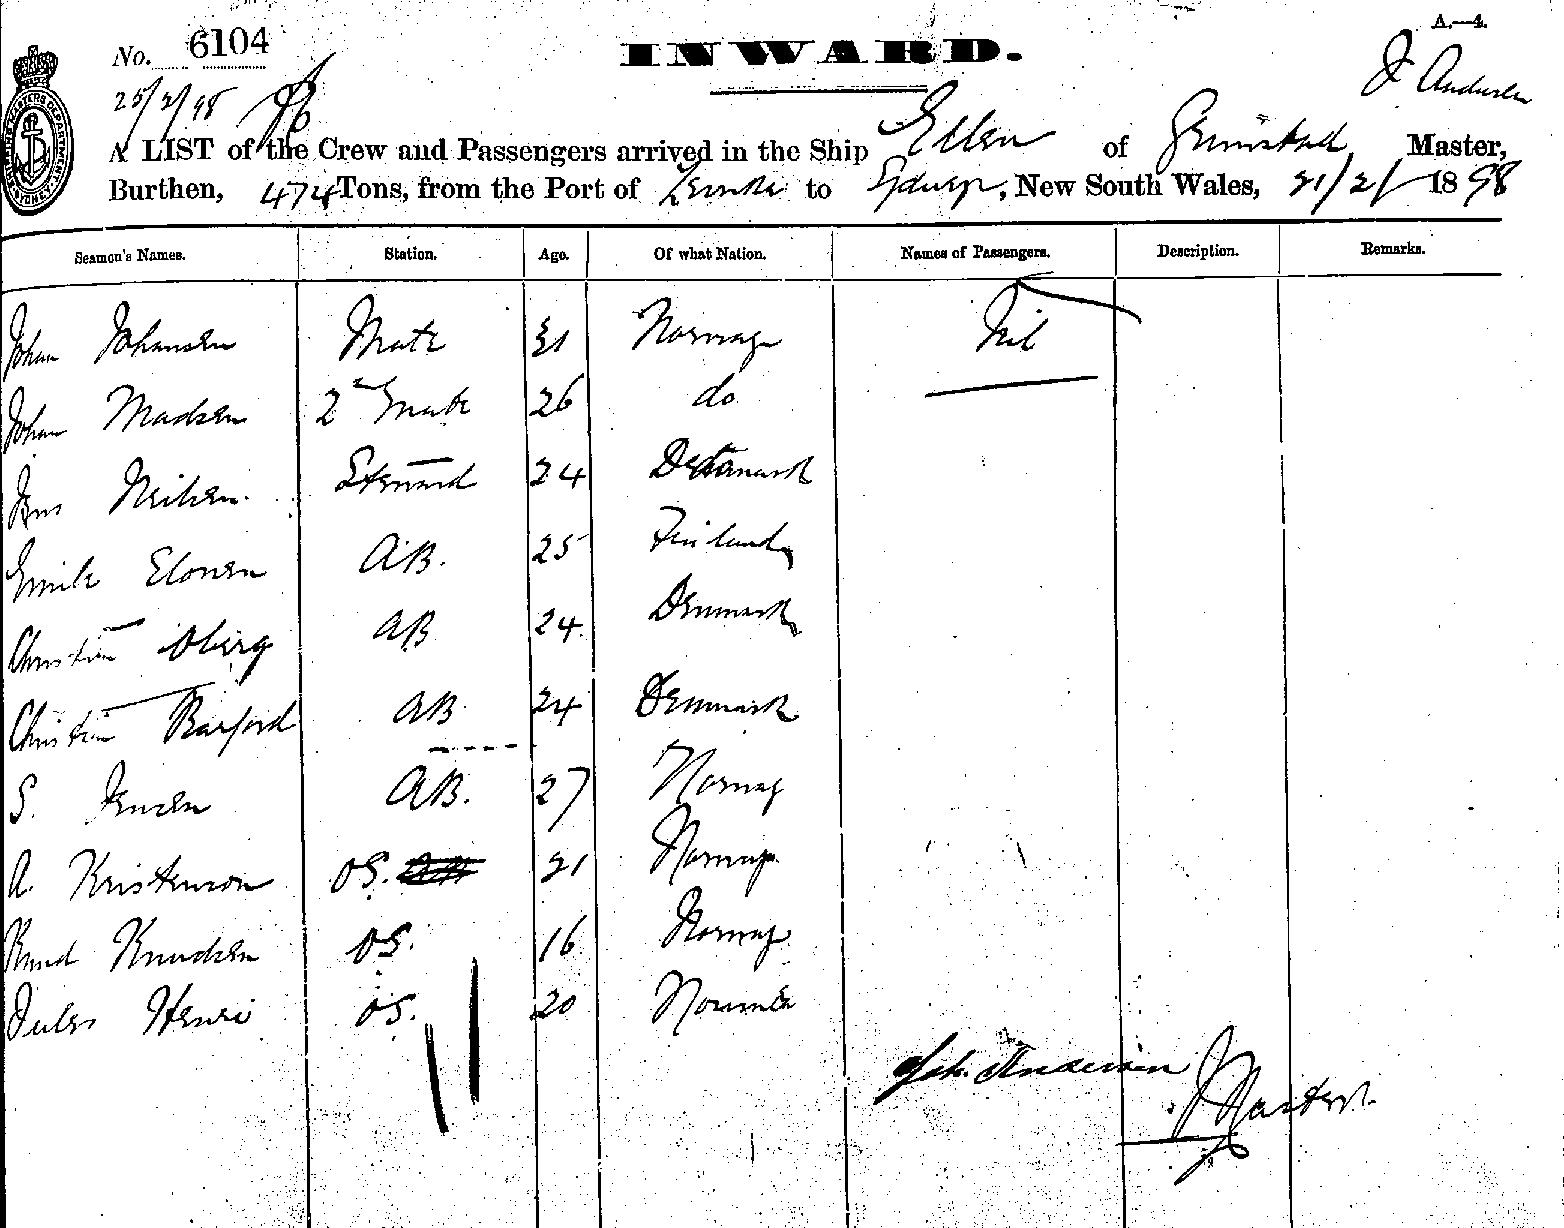 A.—4.
No. 6104
INWARD.
25/2/98
J Andersen
A LIST of the Crew and Passengers arrived in the Ship Ellen of Grimstad Master,
Burthen, 474 Tons, from the Port of to Sydney, New South Wales, 21/2/ 1898
Seamen's Names. Station. Age. Of what Nation. Names of Passengers. Description. Remarks.
Johan Johansen Mate 31 Norway Nil
Johan Madsen 2nd Mate 26 do
Jens Neilsen Steward 24 Denmark
Emile Elonen AB. 25 Finland
Christian Oberg AB 24 Denmark
Christian Barford AB 24 Denmark
S. Jensen AB. 27 Norway
A. Kristenson OS. 21 Norway
Knud Knudsen OS. 16 Norway
Jules Henri OS. 20 Noumea
Joh. Andersen
Master